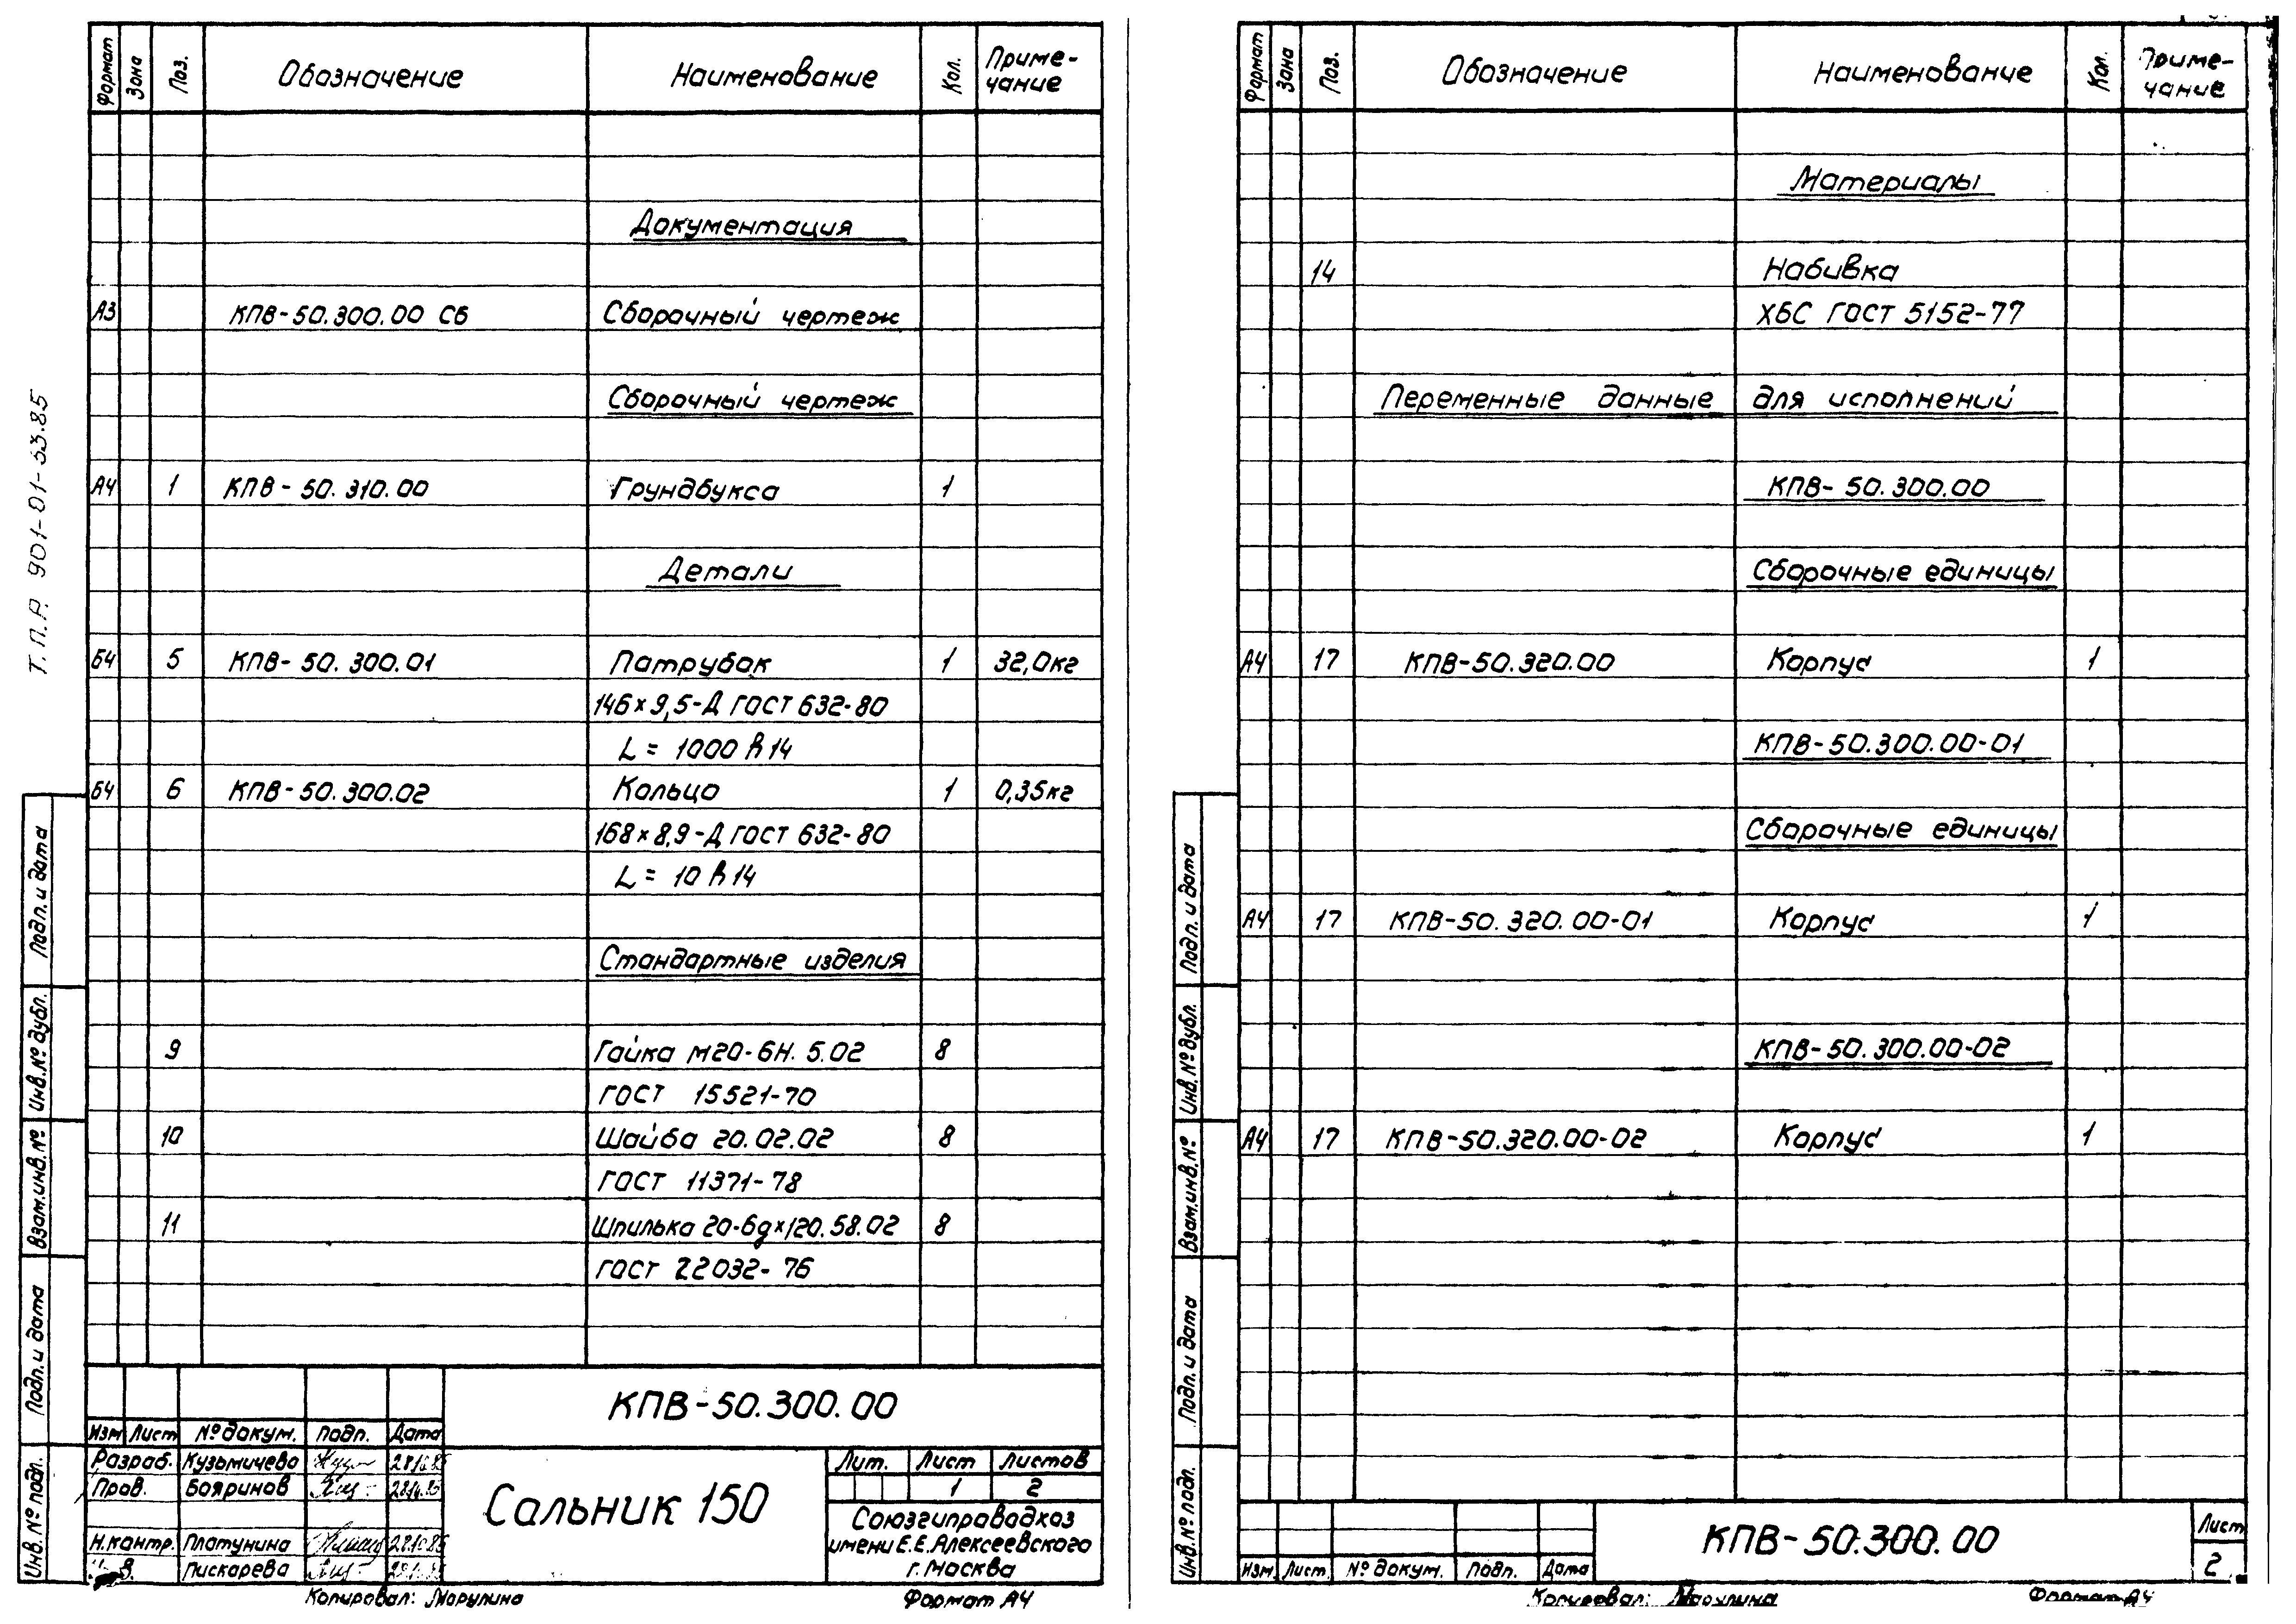 Т.П.Р. 901-01-53.85
Формат Зона Поз. Обозначение Наименование Кол. Приме-
чание
Документация
А3 КПВ-50.300.00 СБ Сборочный чертеж
Сборочный чертеж
А4 1 КПВ-50.310.00 Грундбукса 1
Детали
Б4 5 КПВ-50.300.01 Патрубок 1 32,0кг
146×9,5-Д ГОСТ 632-80
L = 1000 h14
Б4 6 КПВ-50.300.02 Кольцо 1 0,35кг
168×8,9-Д ГОСТ 632-80
L = 10 h14
Стандартные изделия
9 Гайка М20-6Н.5.02 8
ГОСТ 15521-70
10 Шайба 20.02.02 8
ГОСТ 11371-78
11 Шпилька 20-6g×120.58.02 8
ГОСТ 22032-76
Подп. и дата
Инв.№ дубл.
Взам.инв.№
Подп. и дата
Инв.№ подл.
КПВ-50.300.00
Изм Лист № докум. Подп. Дата
Разраб. Кузьмичева
Пров. Бояринов
Н.контр. Платунина
Пискарева
Сальник 150
Лит. Лист Листов
1 2
Союзгипроводхоз
имени Е.Е.Алексеевского
г. Москва
Копировал: Марулина Формат А4
Формат Зона Поз. Обозначение Наименование Кол. Приме-
чание
Материалы
14 Набивка
ХБС ГОСТ 5152-77
Переменные данные для исполнений
КПВ-50.300.00
Сборочные единицы
А4 17 КПВ-50.320.00 Корпус 1
КПВ-50.300.00-01
Сборочные единицы
А4 17 КПВ-50.320.00-01 Корпус 1
КПВ-50.300.00-02
А4 17 КПВ-50.320.00-02 Корпус 1
Подп. и дата
Инв.№ дубл.
Взам.инв.№
Подп. и дата
Инв.№ подл.
Изм Лист № докум. Подп. Дата
КПВ-50.300.00
Лист
2
Копировал: Марулина Формат А4